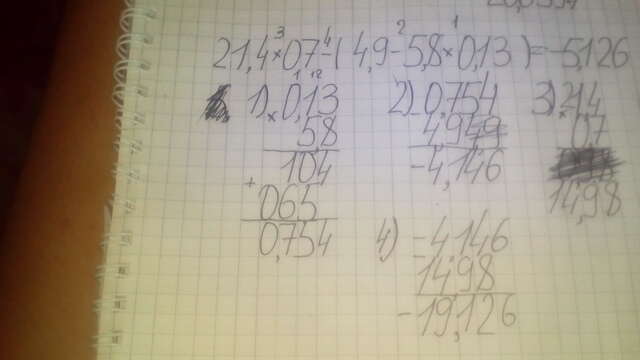 21,4×0,7-(4,9-5,8×0,13)=-5,126
1) 0,13
× 5,8
104
+ 065
0,754
2) 0,754
-4,146
3) 21,4
0,7
14,98
4) -4,146
14,98
-19,126